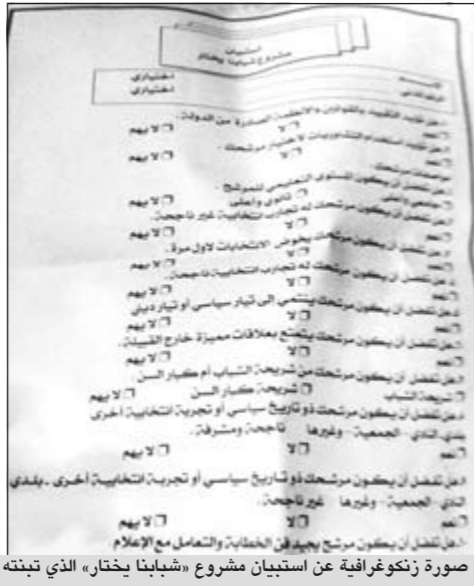 استبيان
مشروع شبابنا يختار
الاسم اختياري
اختياري
هل تؤيد التقييد بالقوانين والأنظمة الصادرة من الدولة.
نعم لا لا يهم
هل تؤيد استخدام التشاوريات لاختيار مرشحك.
نعم لا لا يهم
مواصفات مرشحك
هل تفضل أن يكون المستوى التعليمي للمرشح.
جامعي وأعلى ثانوي وأعلى لا يهم
هل تفضل أن يكون مرشحك له تجارب انتخابية غير ناجحة.
نعم لا لا يهم
هل تفضل أن يكون مرشحك يخوض الانتخابات لأول مرة.
نعم لا لا يهم
هل تفضل أن يكون مرشحك له تجارب انتخابية ناجحة.
نعم لا لا يهم
هل تفضل أن يكون مرشحك ينتمي إلى تيار سياسي أو تيار ديني
نعم لا لا يهم
هل تفضل أن يكون مرشحك يتمتع بعلاقات مميزة خارج القبيلة.
نعم لا لا يهم
هل تفضل أن يكون مرشحك من شريحة الشباب أم كبار السن.
شريحة الشباب شريحة كبار السن لا يهم
هل تفضل أن يكون مرشحك ذو تاريخ سياسي أو تجربة انتخابية أخرى
بلدي النادي - الجمعية - وغيرها ناجحة ومشرفة.
نعم لا لا يهم
هل تفضل أن يكون مرشحك ذو تاريخ سياسي أو تجربة انتخابية أخرى - بلدي
النادي - الجمعية - وغيرها غير ناجحة.
نعم لا لا يهم
هل تفضل أن يكون مرشح يجيد فن الخطابة والتعامل مع الإعلام.
صورة زنكوغرافية عن استبيان مشروع «شبابنا يختار» الذي تبنته